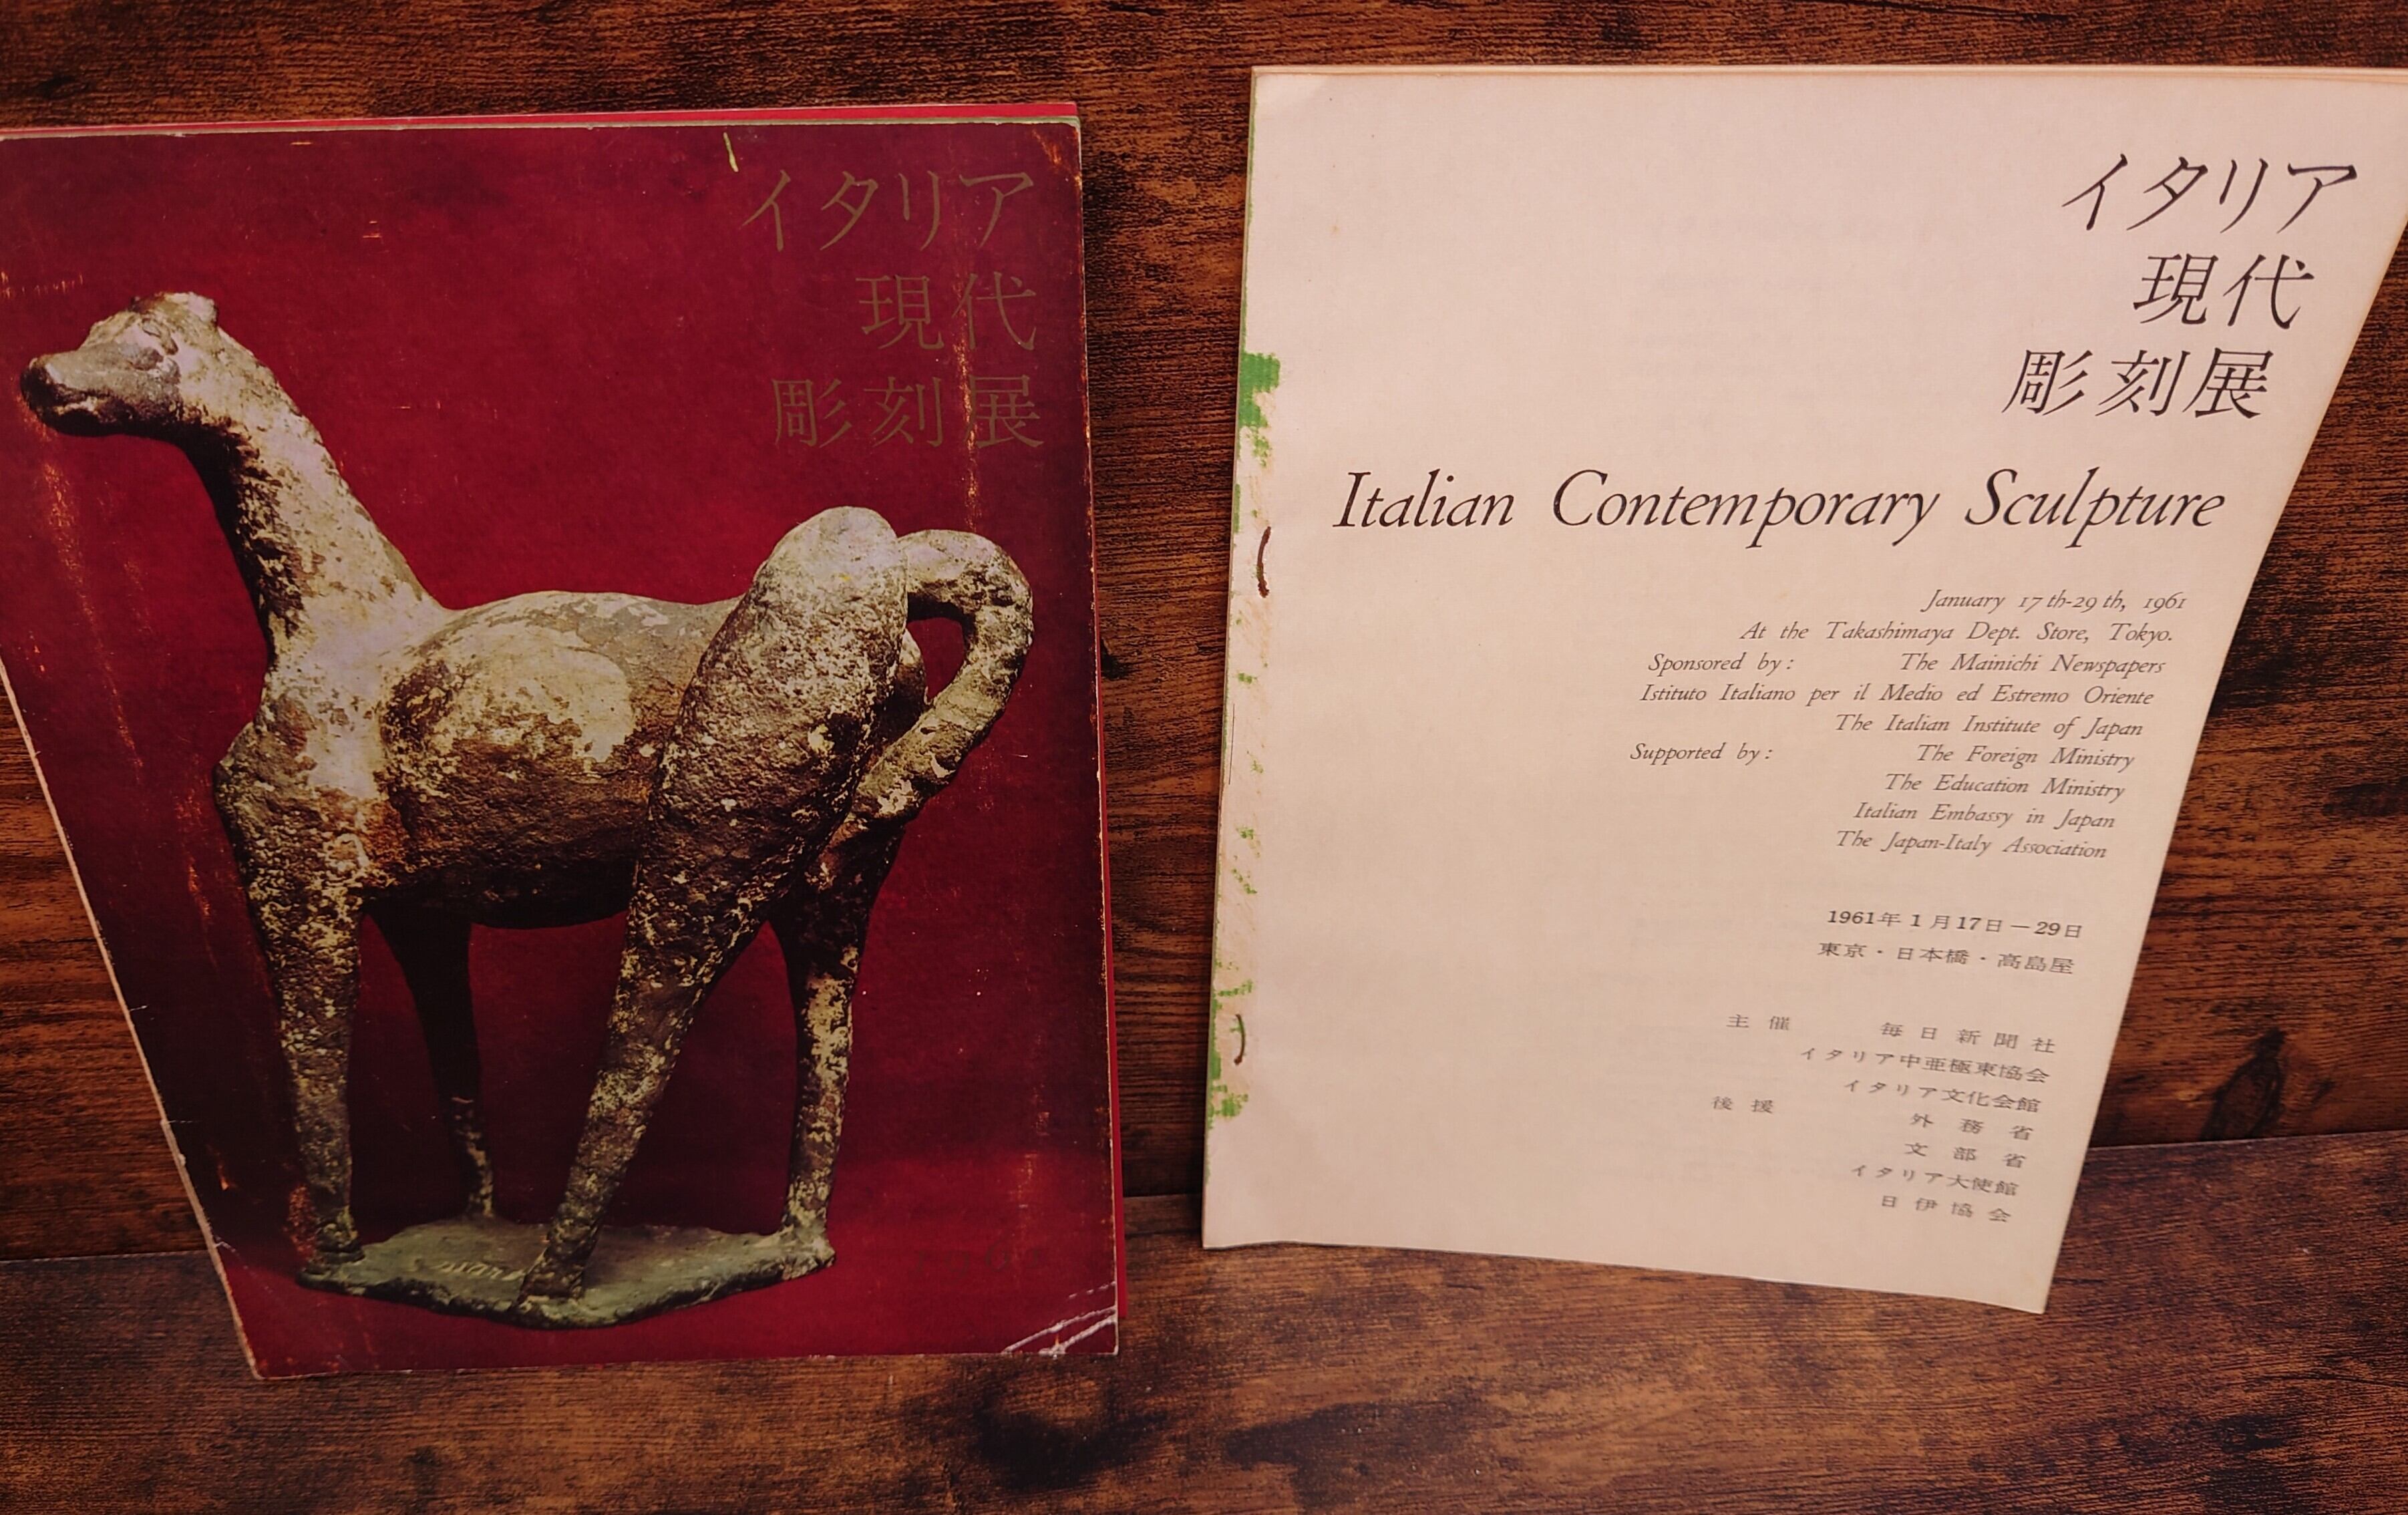 イタリア
現代
彫刻展
イタリア
現代
彫刻展
Italian Contemporary Sculpture
January 17 th-29 th, 1961
At the Takashimaya Dept. Store, Tokyo.
Sponsored by : The Mainichi Newspapers
Istituto Italiano per il Medio ed Estremo Oriente
The Italian Institute of Japan
Supported by : The Foreign Ministry
The Education Ministry
Italian Embassy in Japan
The Japan-Italy Association
1961年1月17日－29日
東京・日本橋・高島屋
主催 毎日新聞社
イタリア中亜極東協会
イタリア文化会館
後援 外務省
文部省
イタリア大使館
日伊協会